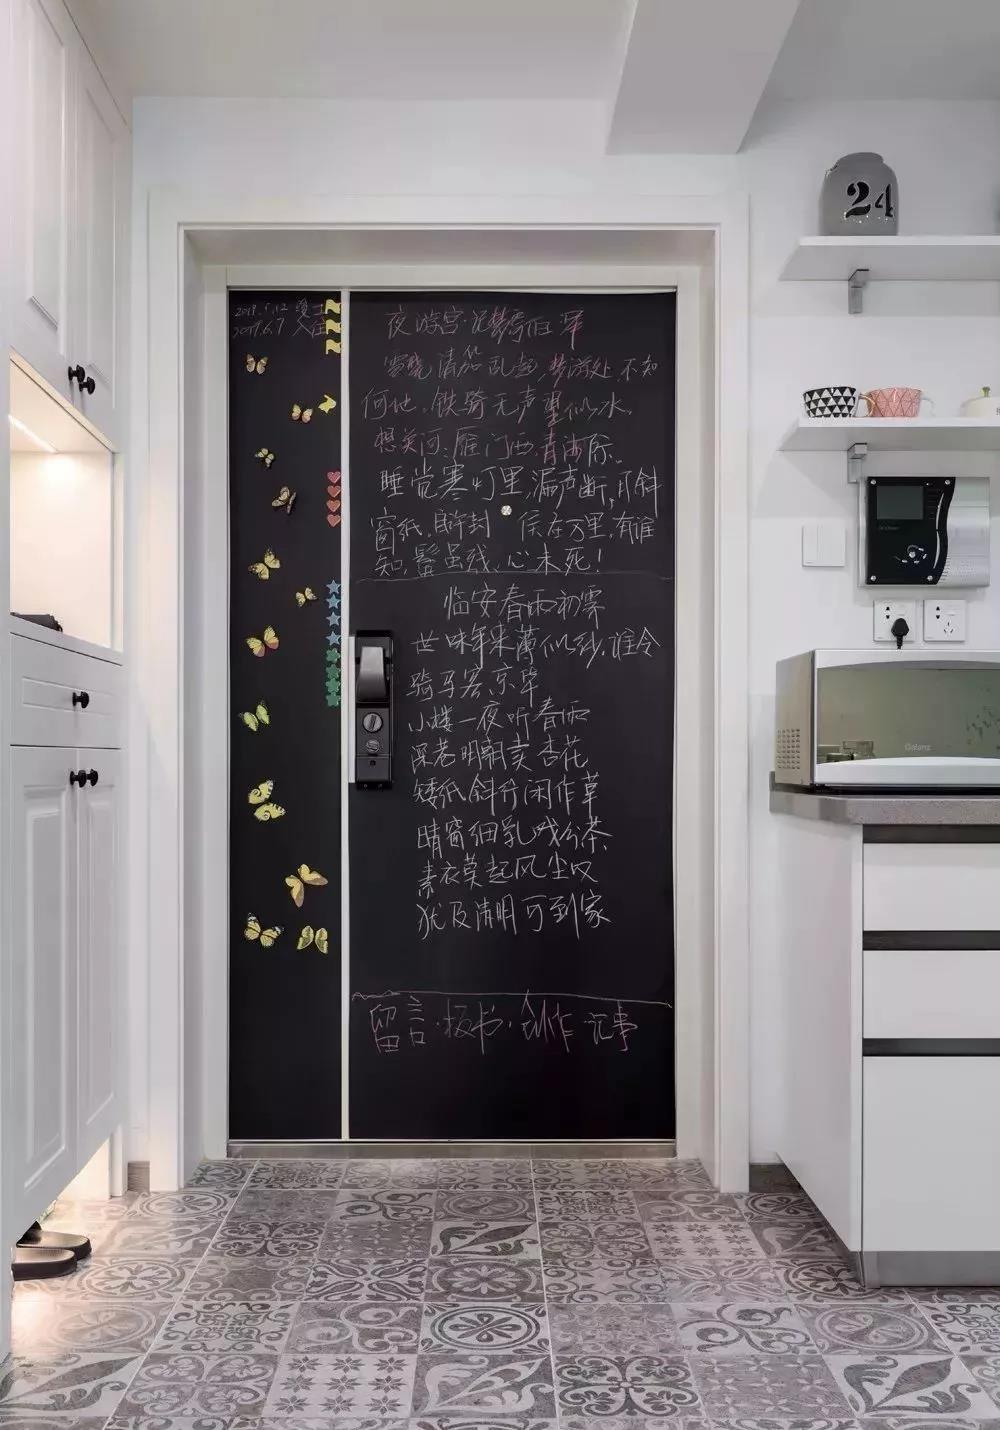 24
2019.5.12
2019.6.7 入住
夜游宫·记梦寄师伯浑
雪晓清笳乱起,梦游处、不知
何地。铁骑无声望似水。
想关河:雁门西,青海际。
睡觉寒灯里,漏声断,月斜
窗纸。自许封侯在万里。有谁
知,鬓虽残,心未死!
临安春雨初霁
世味年来薄似纱,谁令
骑马客京华
小楼一夜听春雨
深巷明朝卖杏花
矮纸斜行闲作草
晴窗细乳戏分茶
素衣莫起风尘叹
犹及清明可到家
留言·板书·创作·记事
Galanz